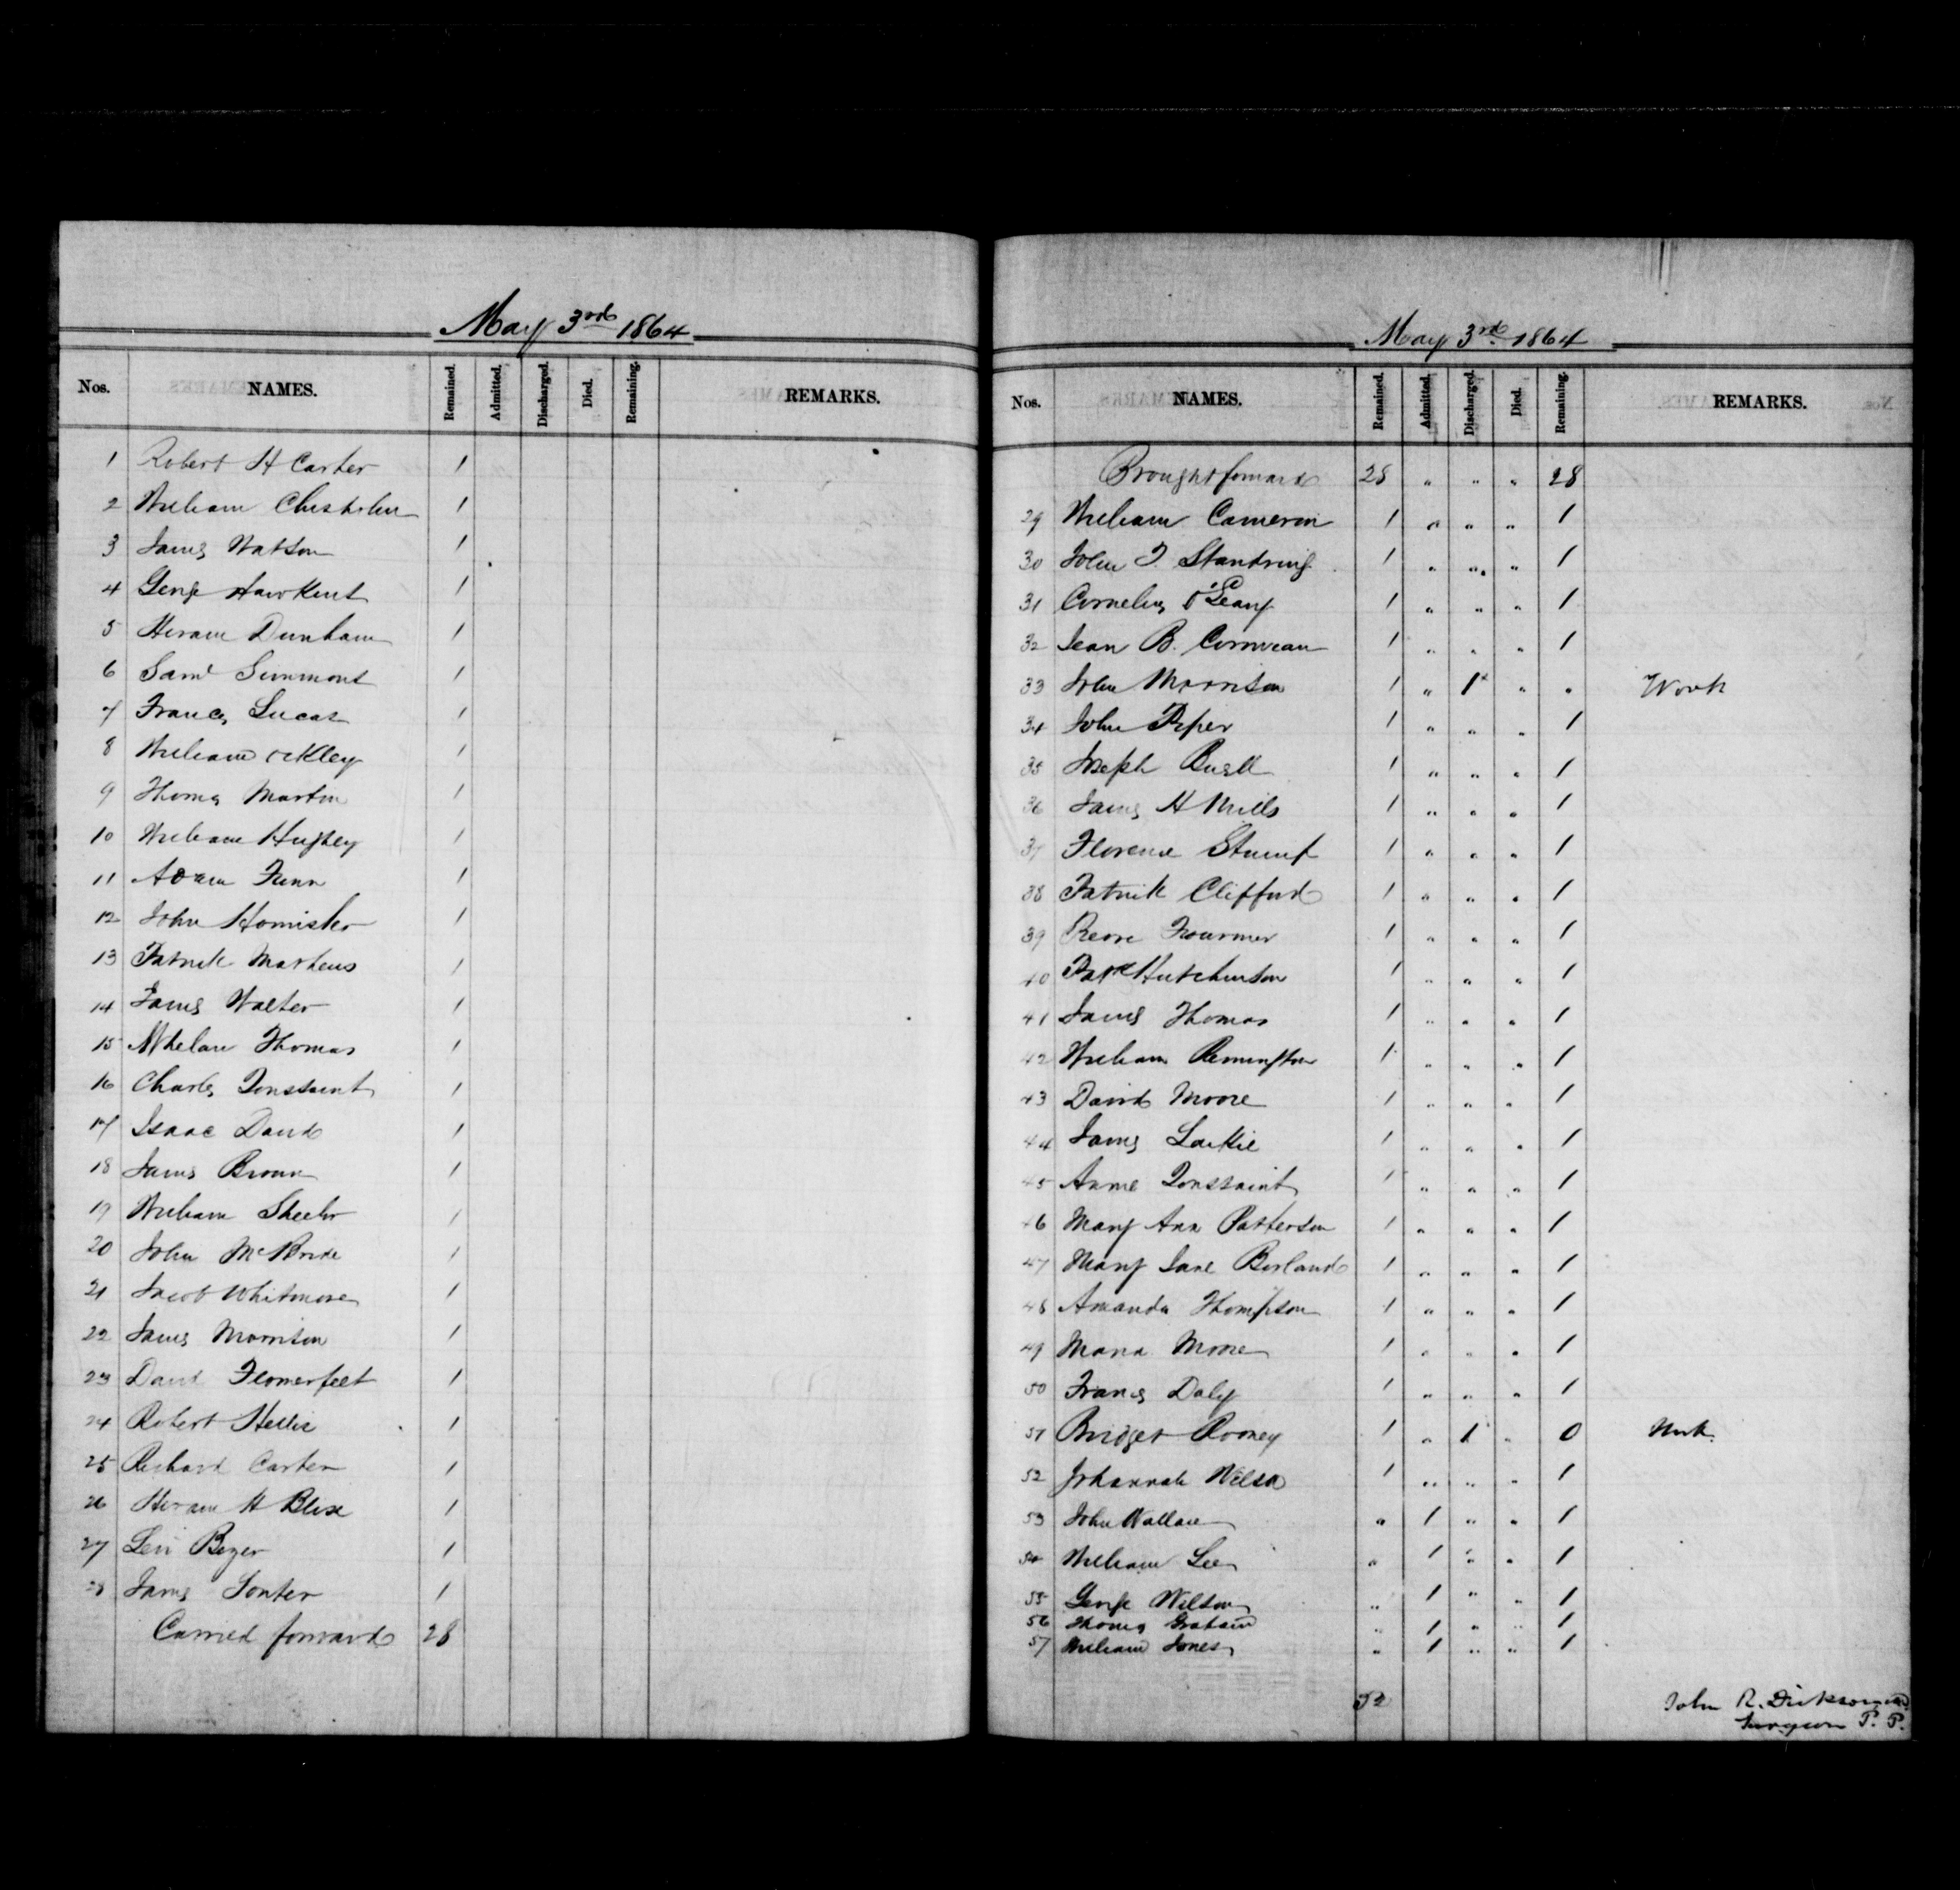 May 3rd 1864
Nos. NAMES. Remained. Admitted. Discharged. Died. Remaining. REMARKS.
1 Robert H Carter 1
2 William Chisholm 1
3 James Watson 1
4 George Hawkins 1
5 Hiram Dunham 1
6 Saml Simmons 1
7 Francis Lucas 1
8 William 1
9 Thomas Martin 1
10 William Hughey 1
11 Adam Funn 1
12 John 1
13 Patrick Mathews 1
14 James Walter 1
15 Thomas 1
16 Charles Toussaint 1
17 Isaac David 1
18 James Brown 1
19 William Sheeler 1
20 John McBride 1
21 Jacob Whitmore 1
22 James Morrison 1
23 David Flomerfelt 1
24 Robert Hellis 1
25 Richard Carter 1
26 Hiram H Blise 1
27 Levi Beyer 1
28 James Souter 1
Carried forward 28
May 3rd 1864
Nos. NAMES. Remained. Admitted. Discharged. Died. Remaining. REMARKS.
Brought forward 28 " " " 28
29 William Cameron 1 " " " 1
30 John T. Standring 1 " " " 1
31 Cornelius 1 " " " 1
32 Jean B. Corriveau 1 " " " 1
33 John Morrison 1 " 1 " " Work
34 John Piper 1 " " " 1
35 Joseph Buell 1 " " " 1
36 James H Mills 1 " " " 1
37 Florence Stumpf 1 " " " 1
38 Patrick Clifford 1 " " " 1
39 Pierre Fournier 1 " " " 1
40 Patk Hutchinson 1 " " " 1
41 James Thomas 1 " " " 1
42 William Remington 1 " " " 1
43 David Moore 1 " " " 1
44 James Lackie 1 " " " 1
45 Annie Toussaint 1 " " " 1
46 Mary Ann Patterson 1 " " " 1
47 Mary Jane Borland 1 " " " 1
48 Amanda Thompson 1 " " " 1
49 Maria Moore 1 " " " 1
50 Francis Daly 1 " " " 1
51 Bridget Rooney 1 " 1 " 0 Work
52 Johannah Wilson 1 " " " 1
53 John Wallace " 1 " " 1
54 William Lee " 1 " " 1
55 George Wilson " 1 " " 1
56 Thomas Graham " 1 " " 1
57 William Jones " 1 " " 1
52
John R. Dickson MD
Surgeon P. P.